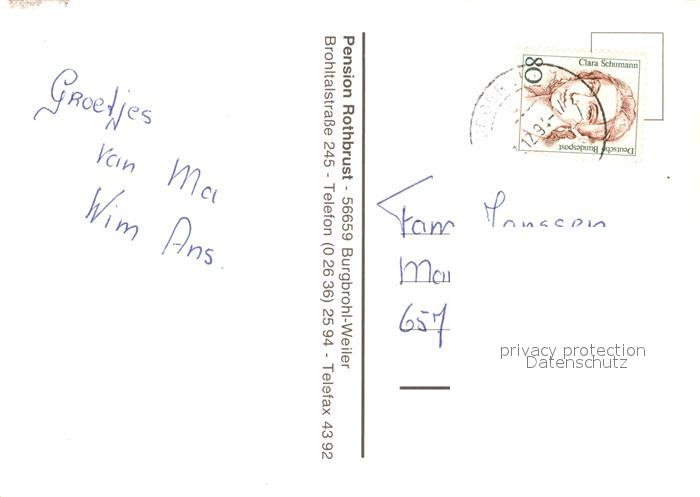 Groetjes
van Ma
Wim Ans.
Pension Rothbrust - 56659 Burgbrohl-Weiler
Brohltalstraße 245 - Telefon (0 26 36) 25 94 - Telefax 43 92
Clara Schumann
80
Deutsche Bundespost
12.9
Fam Janssen
Ma
657
privacy protection
Datenschutz